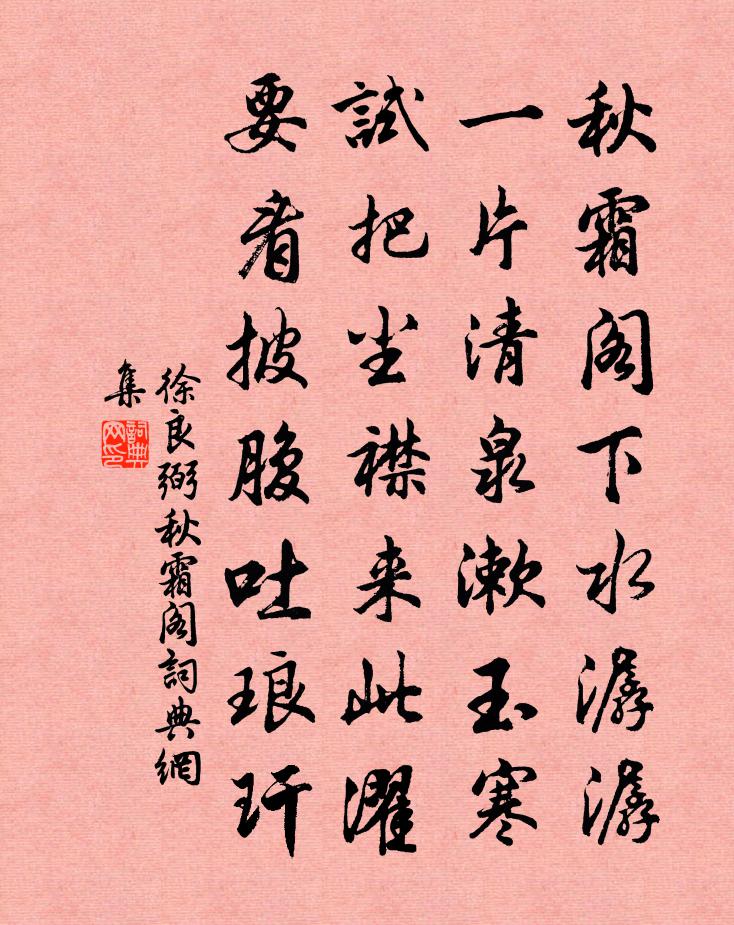 秋霜阁下水潺潺
一片清泉漱玉寒
試把尘襟来此濯
要看披腹吐琅玕
徐良弼秋霜阁詞典網
集
詞典网印